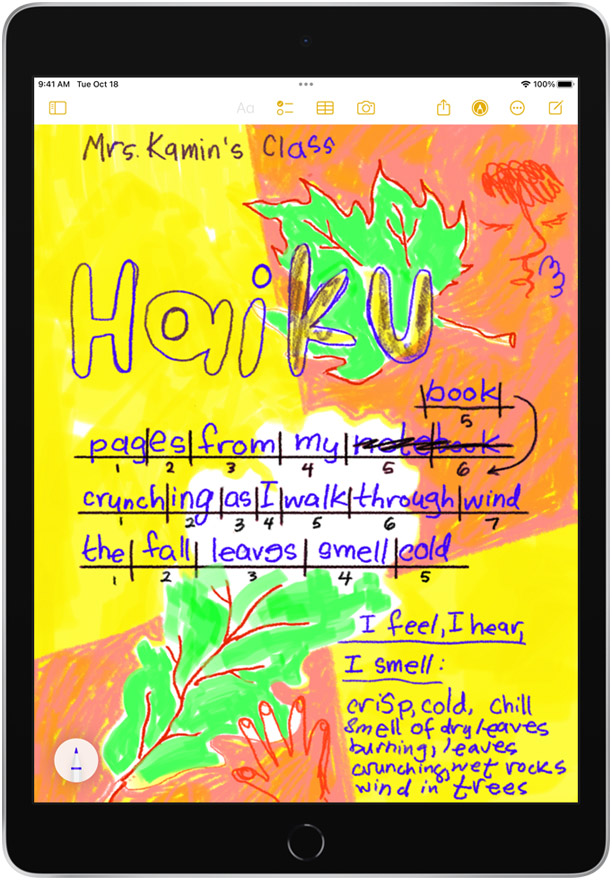 9:41 AM Tue Oct 18
100%
Aa
Mrs. Kamin's Class
Haiku
book
5
pages from my notebook
1 2 3 4 5 6
crunching as I walk through wind
1 2 3 4 5 6 7
the fall leaves smell cold
1 2 3 4 5
I feel, I hear,
I smell:
crisp, cold, chill
smell of dry leaves
burning, leaves
crunching, wet rocks
wind in trees